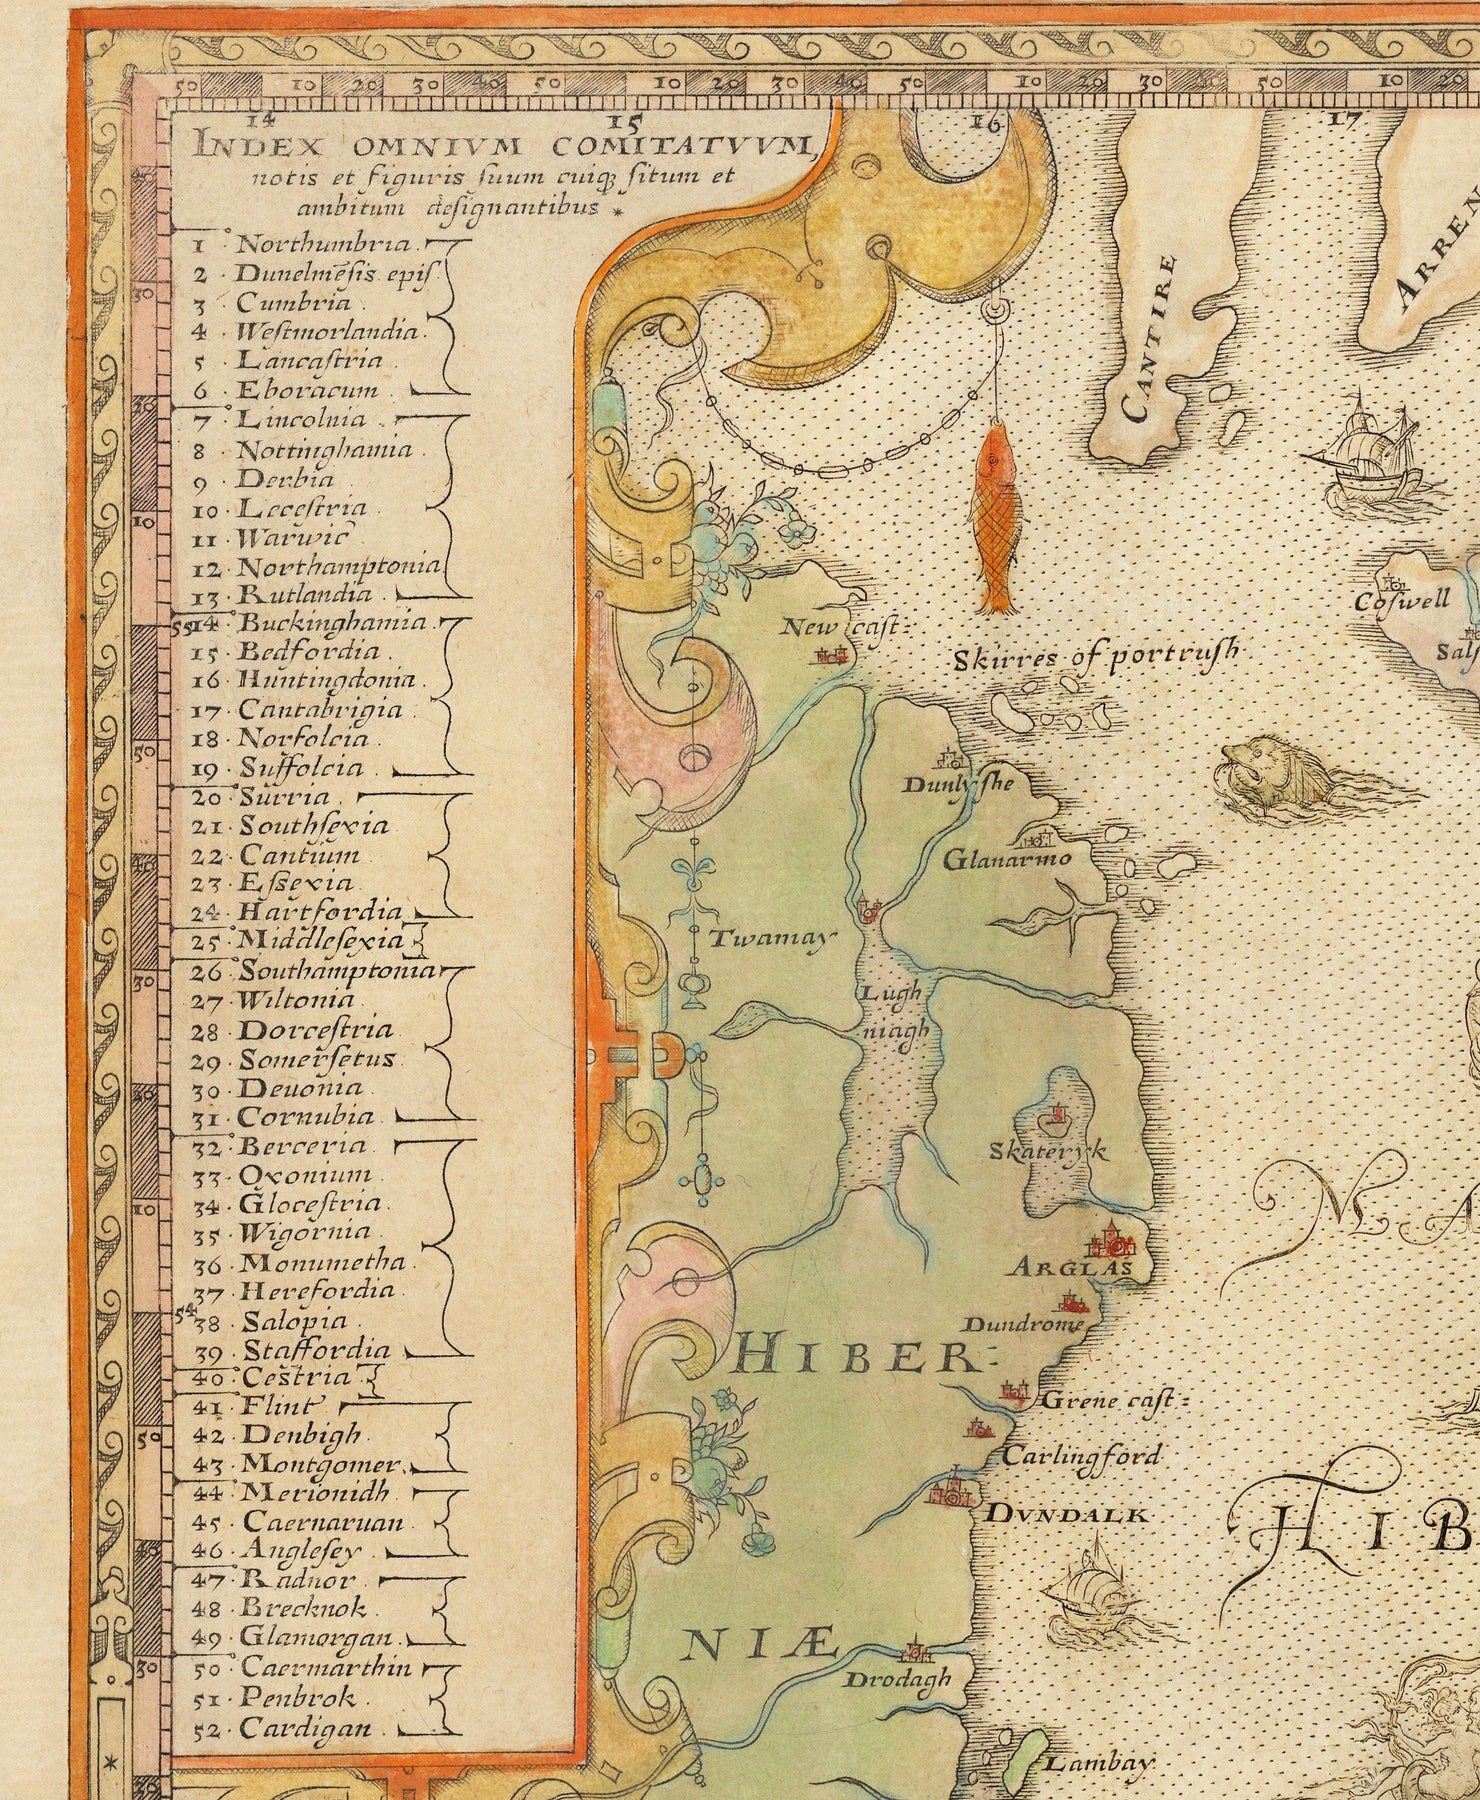 50 10 20 30 40 50 10 20 30 40 50 10 20 30 40 50 10 20
14 15 16 17
INDEX OMNIVM COMITATVVM,
notis et figuris ſuum cuiqꝫ ſitum et
ambitum deſignantibus
1 Northumbria.
2 Dunelmēſis epiſ.
3 Cumbria.
4 Weſtmorlandia.
5 Lancaſtria
6 Eboracum
7 Lincolnia
8 Nottinghamia.
9 Derbia
10 Leceſtria.
11 Warwic
12 Northamptonia
13 Rutlandia.
14 Buckinghamia.
15 Bedfordia.
16 Huntingdonia.
17 Cantabrigia.
18 Norfolcia.
19 Suffolcia.
20 Surria.
21 Southſexia
22 Cantium
23 Eſsexia.
24 Hartfordia.
25 Middleſexia
26 Southamptonia
27 Wiltonia.
28 Dorceſtria.
29 Somerſetus.
30 Deuonia.
31 Cornubia.
32 Berceria.
33 Oxonium.
34 Gloceſtria.
35 Wigornia.
36 Monumetha.
37 Herefordia.
38 Salopia.
39 Staffordia
40 Ceſtria
41 Flint
42 Denbigh.
43 Montgomer.
44 Merionidh.
45 Caernaruan
46 Angleſey.
47 Radnor.
48 Brecknok.
49 Glamorgan.
50 Caermarthin
51 Penbrok.
52 Cardigan.
55
54
CANTIRE
ARREN
Coſwell
Salſ
New caſt:
Skirres of portruſh
Dunlyſhe
Glanarmo
Twamay
Lugh
niagh
Skateryk
ARGLAS
Dundrome
HIBER:
Grene caſt:
Carlingford
DVNDALK
NIÆ
Drodagh
Lambay
MA
HIB